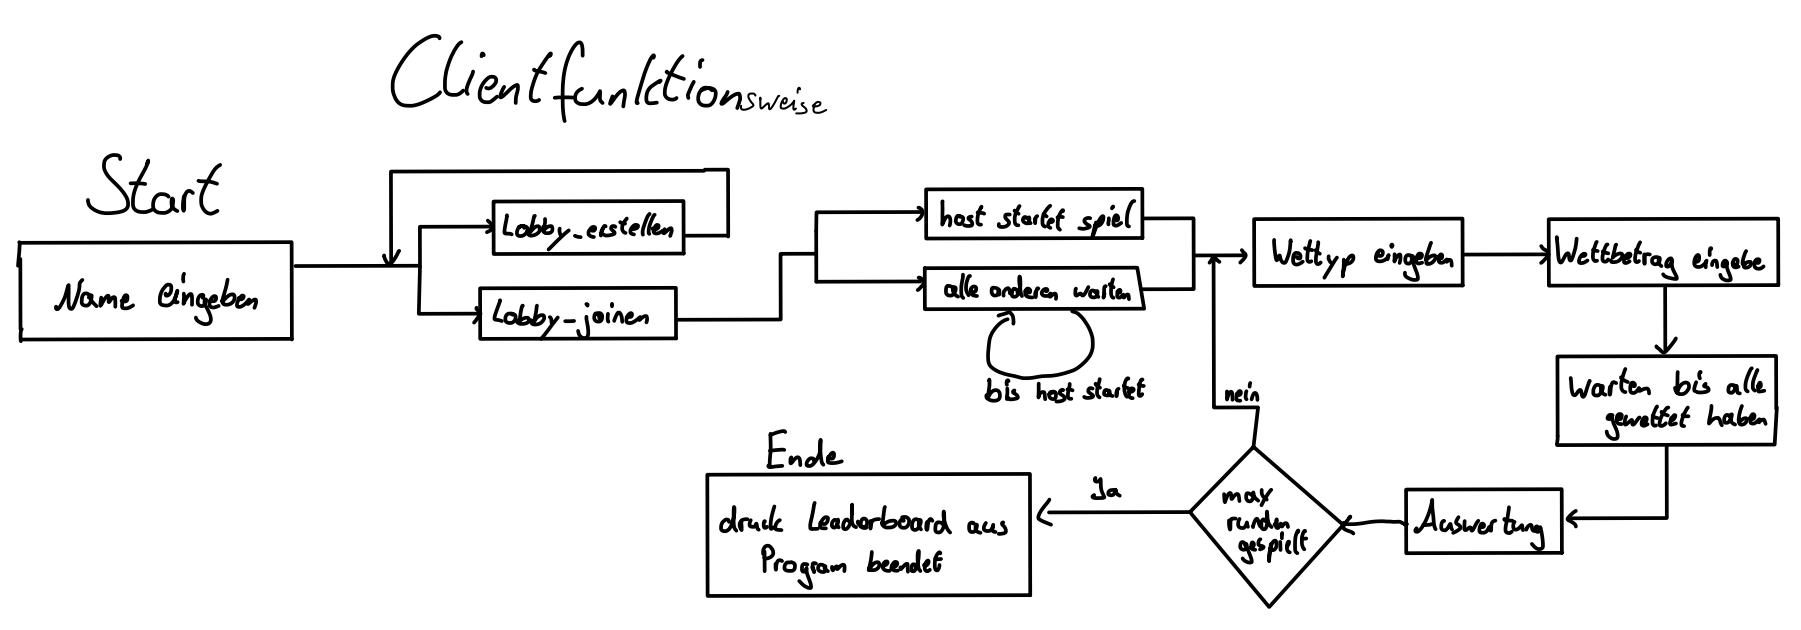 Clientfunktionsweise
Start
Name eingeben
Lobby_erstellen
Lobby_joinen
host startet spiel
alle anderen warten
bis host startet
Wettyp eingeben
Wettbetrag eingebe
warten bis alle
gewettet haben
Auswertung
max
runden
gespielt
nein
Ja
Ende
druck Leaderboard aus
Program beendet